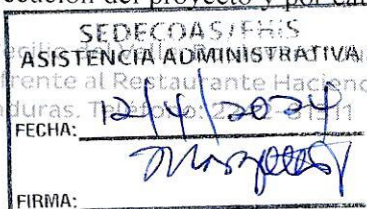 ecución del proyecto y por ca
SEDECOAS/FHIS
ASISTENCIA ADMINISTRATIVA
frente al Restaurante Hacien
duras. Teléfono: 22
FECHA: 12/4/2024
FIRMA: